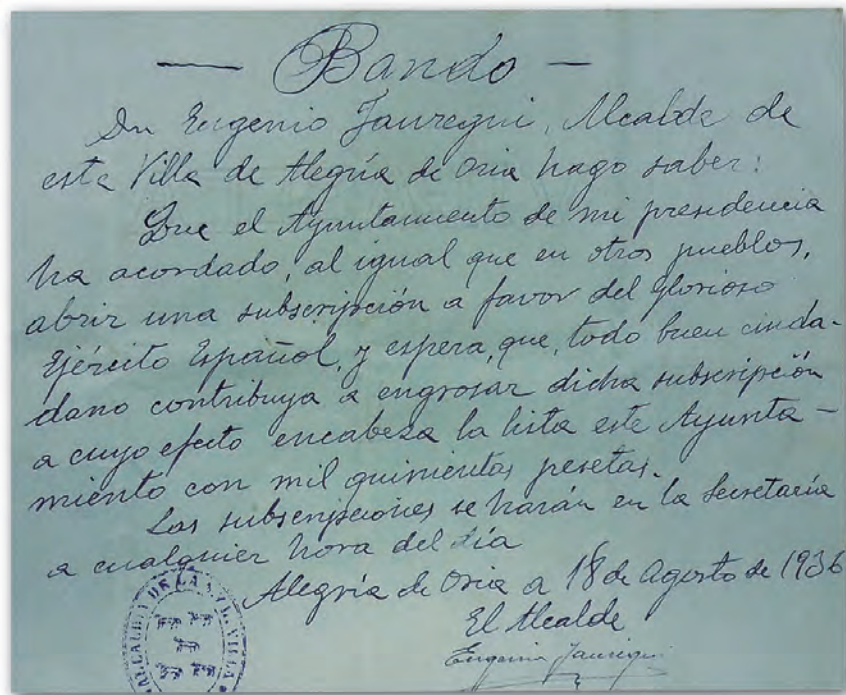 — Bando —
Dn Eugenio Jauregui, Alcalde de
esta Villa de Alegría de Oria hago saber:
Que el Ayuntamiento de mi presidencia
ha acordado, al igual que en otros pueblos,
abrir una subscripción a favor del glorioso
Ejército Español, y espera, que, todo buen ciuda-
dano contribuya a engrosar dicha subscripción
a cuyo efecto encabeza la lista este Ayunta-
miento con mil quinientas pesetas.
Las subscripciones se harán en la Secretaría
a cualquier hora del día
Alegría de Oria a 18 de Agosto de 1936
El Alcalde
Eugenio Jauregui
ALCALDIA DE LA VILLA